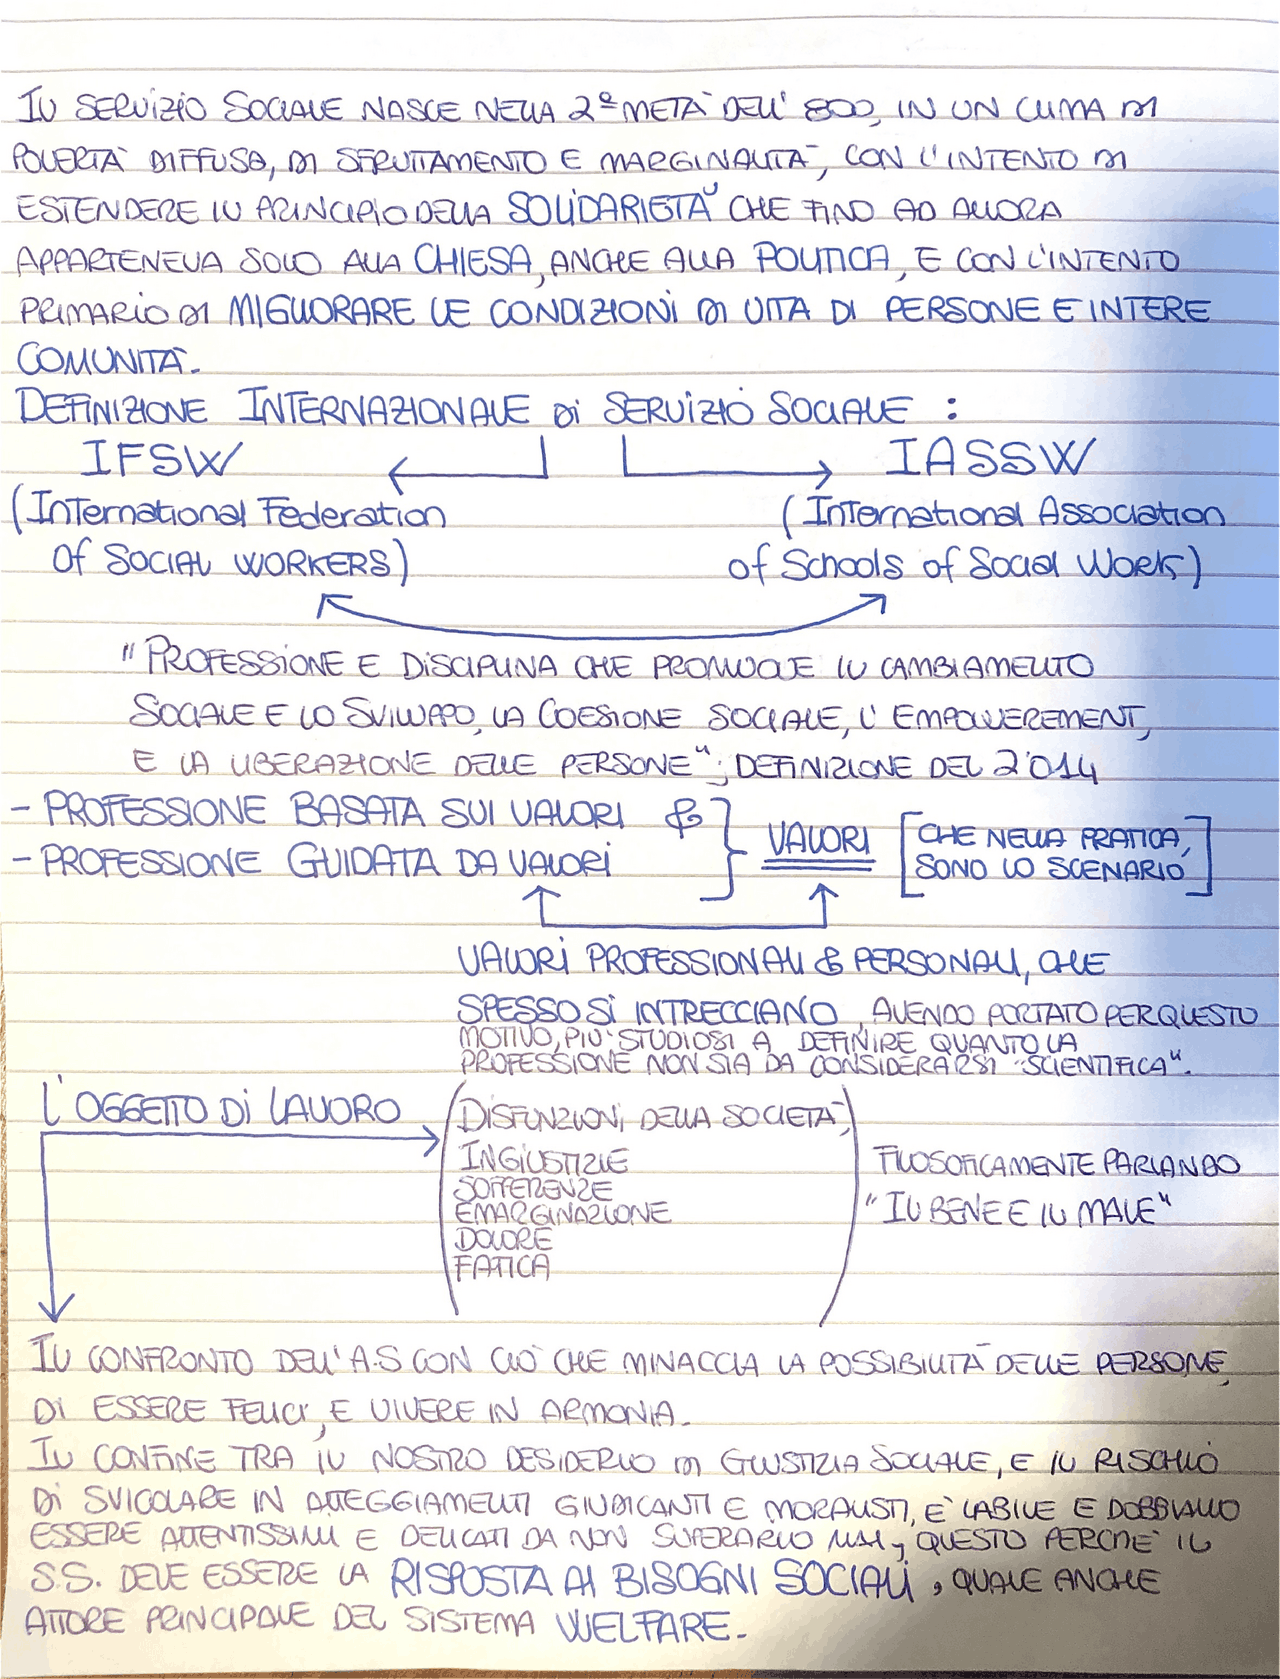 IL SERVIZIO SOCIALE NASCE NELLA 2ª METÀ DELL' 800, IN UN CLIMA DI
POVERTÀ DIFFUSA, DI SFRUTTAMENTO E MARGINALITÀ, CON L'INTENTO DI
ESTENDERE IL PRINCIPIO DELLA SOLIDARIETÀ CHE FINO AD ALLORA
APPARTENEVA SOLO ALLA CHIESA, ANCHE ALLA POLITICA, E CON L'INTENTO
PRIMARIO DI MIGLIORARE LE CONDIZIONI DI VITA DI PERSONE E INTERE
COMUNITÀ.
DEFINIZIONE INTERNAZIONALE DI SERVIZIO SOCIALE :
IFSW IASSW
(International Federation (International Association
Of SOCIAL WORKERS) of Schools of Social Work)
"PROFESSIONE E DISCIPLINA CHE PROMUOVE IL CAMBIAMENTO
SOCIALE E LO SVILUPPO, LA COESIONE SOCIALE, L' EMPOWEREMENT,
E LA LIBERAZIONE DELLE PERSONE"; DEFINIZIONE DEL 2'014
- PROFESSIONE BASATA SUI VALORI &
- PROFESSIONE GUIDATA DA VALORI
VALORI [CHE NELLA PRATICA,
SONO LO SCENARIO]
VALORI PROFESSIONALI & PERSONALI, CHE
SPESSO SI INTRECCIANO, AVENDO PORTATO PER QUESTO
MOTIVO, PIÙ STUDIOSI A DEFINIRE QUANTO LA
PROFESSIONE NON SIA DA CONSIDERARSI "SCIENTIFICA".
L'OGGETTO DI LAVORO
(DISFUNZIONI DELLA SOCIETÀ,
INGIUSTIZIE
SOFFERENZE
EMARGINAZIONE
DOLORE
FATICA)
FILOSOFICAMENTE PARLANDO
"IL BENE E IL MALE"
IL CONFRONTO DELL'A.S CON CIÒ CHE MINACCIA LA POSSIBILITÀ DELLE PERSONE,
DI ESSERE FELICI, E VIVERE IN ARMONIA.
IL CONFINE TRA IL NOSTRO DESIDERIO DI GIUSTIZIA SOCIALE, E IL RISCHIO
DI SVICOLARE IN ATTEGGIAMENTI GIUDICANTI E MORALISTI, E' LABILE E DOBBIAMO
ESSERE ATTENTISSIMI E DELICATI DA NON SUPERARLO MAI, QUESTO PERCHE' IL
S.S. DEVE ESSERE LA RISPOSTA AI BISOGNI SOCIALI, QUALE ANCHE
ATTORE PRINCIPALE DEL SISTEMA WELFARE.